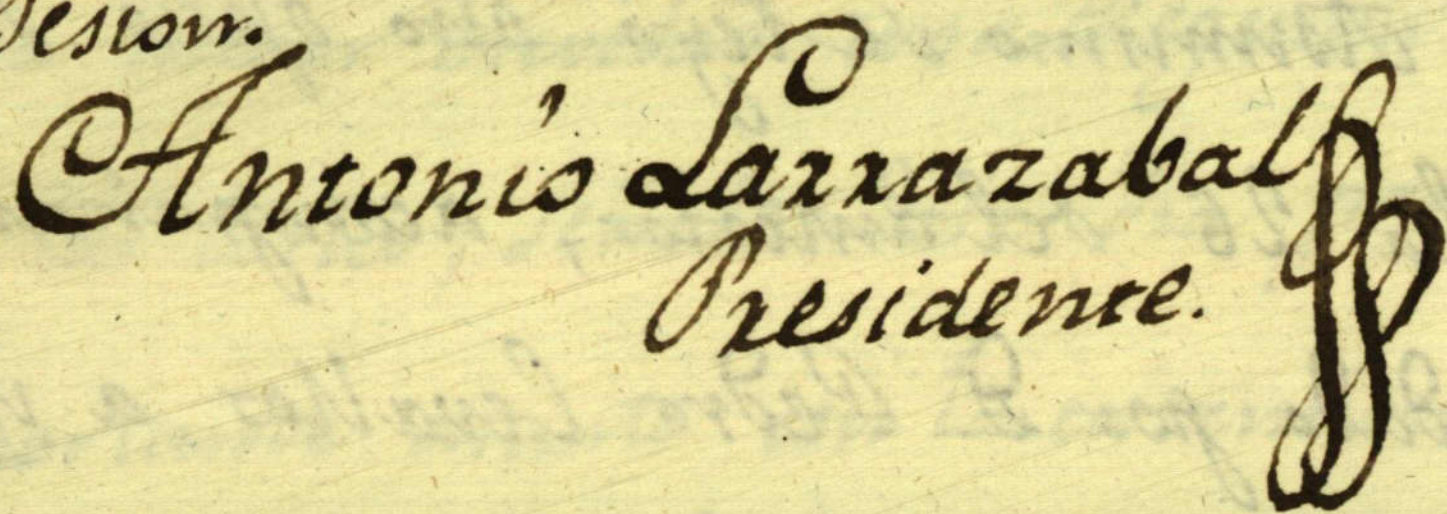 Sesion.
Antonio Larrazabal
Presidente.